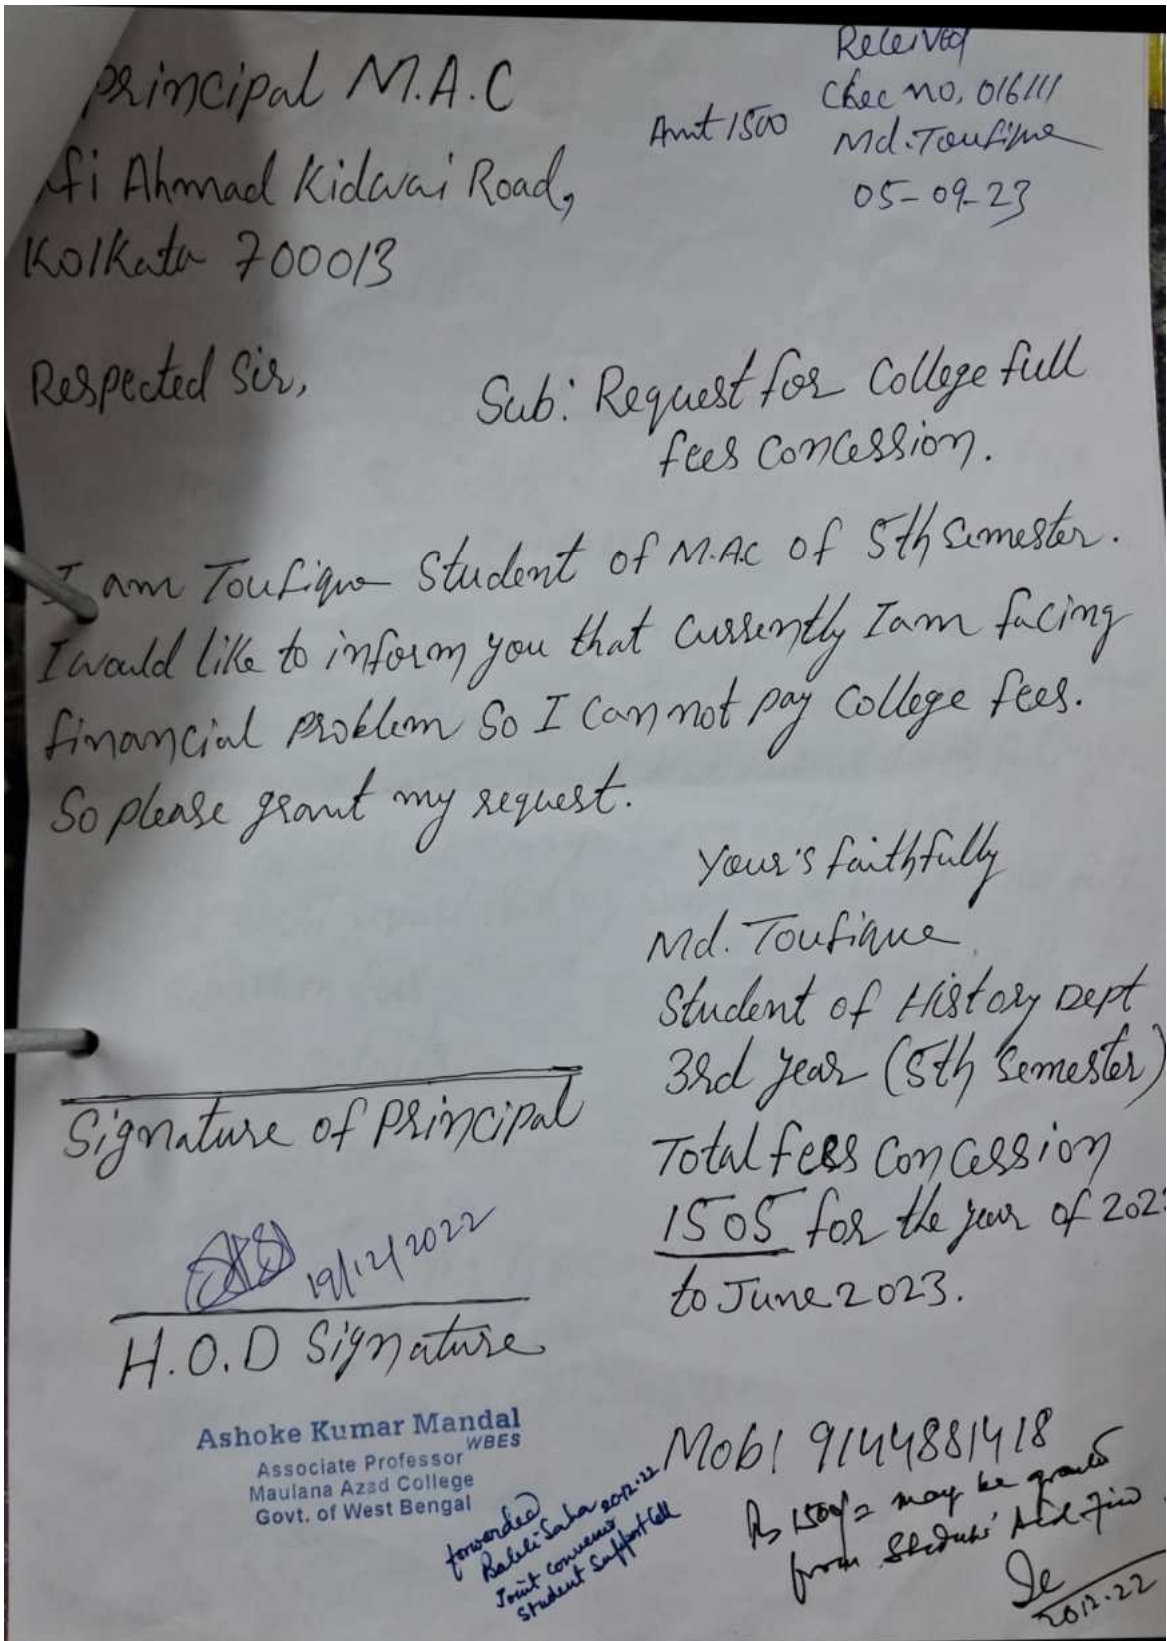 Principal M.A.C
fi Ahmad Kidwai Road,
Kolkata 700013
Received
Chec no, 016111
Amt 1500
Md. Toufique
05-09-23
Respected Sir,
Sub: Request for College full
fees Concession.
I am Toufique Student of M.A.C of 5th Semester.
I would like to inform you that currently I am facing
financial problem So I Can not pay College fees.
So please grant my request.
Your's faithfully
Md. Toufique
Student of History Dept
3rd year (5th Semester)
Total fees Concession
1505 for the year of 202
to June 2023.
Signature of Principal
19/12/2022
H.O.D Signature
Ashoke Kumar Mandal
WBES
Associate Professor
Maulana Azad College
Govt. of West Bengal
Mob! 9144881418
forwarded
Saha 20.12.22
Joint convenor
Student Support Cell
Rs 1500/= may be granted
from Students' Aid
20.12.22